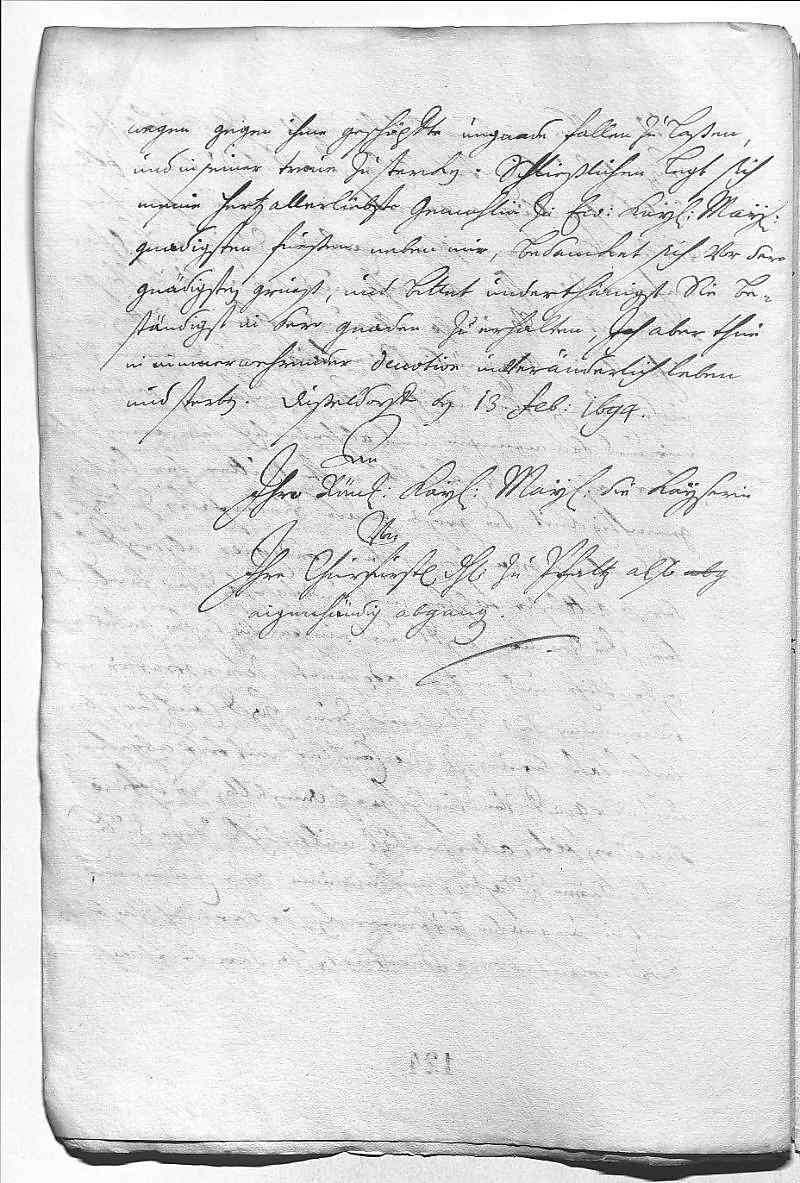 wegen gegen ihme geschöpffte ungnade fallen zu laßen,
und in seiner treue zu sterckhen. Schließlichen legt sich
meine hertzallerliebste Gemahlin zu Ew: Kayl: Mayt:
gnädigsten füeßen neben mir, bedanckhet sich vor dero
gnädigsten grueß, und bittet underthänigst Sie be-
ständigst in dero gnaden zu erhalten, ich aber thue
in immerwehrender devotion unveränderlich leben
und sterben. Dußeldorff den 13 Feb: 1694.
An
Ihro Röm: Kayl: Mayt: die Kayserin
Von
Ihro Churfürstl dhl: zu Pfaltz also
eigenhändig abgang.
124